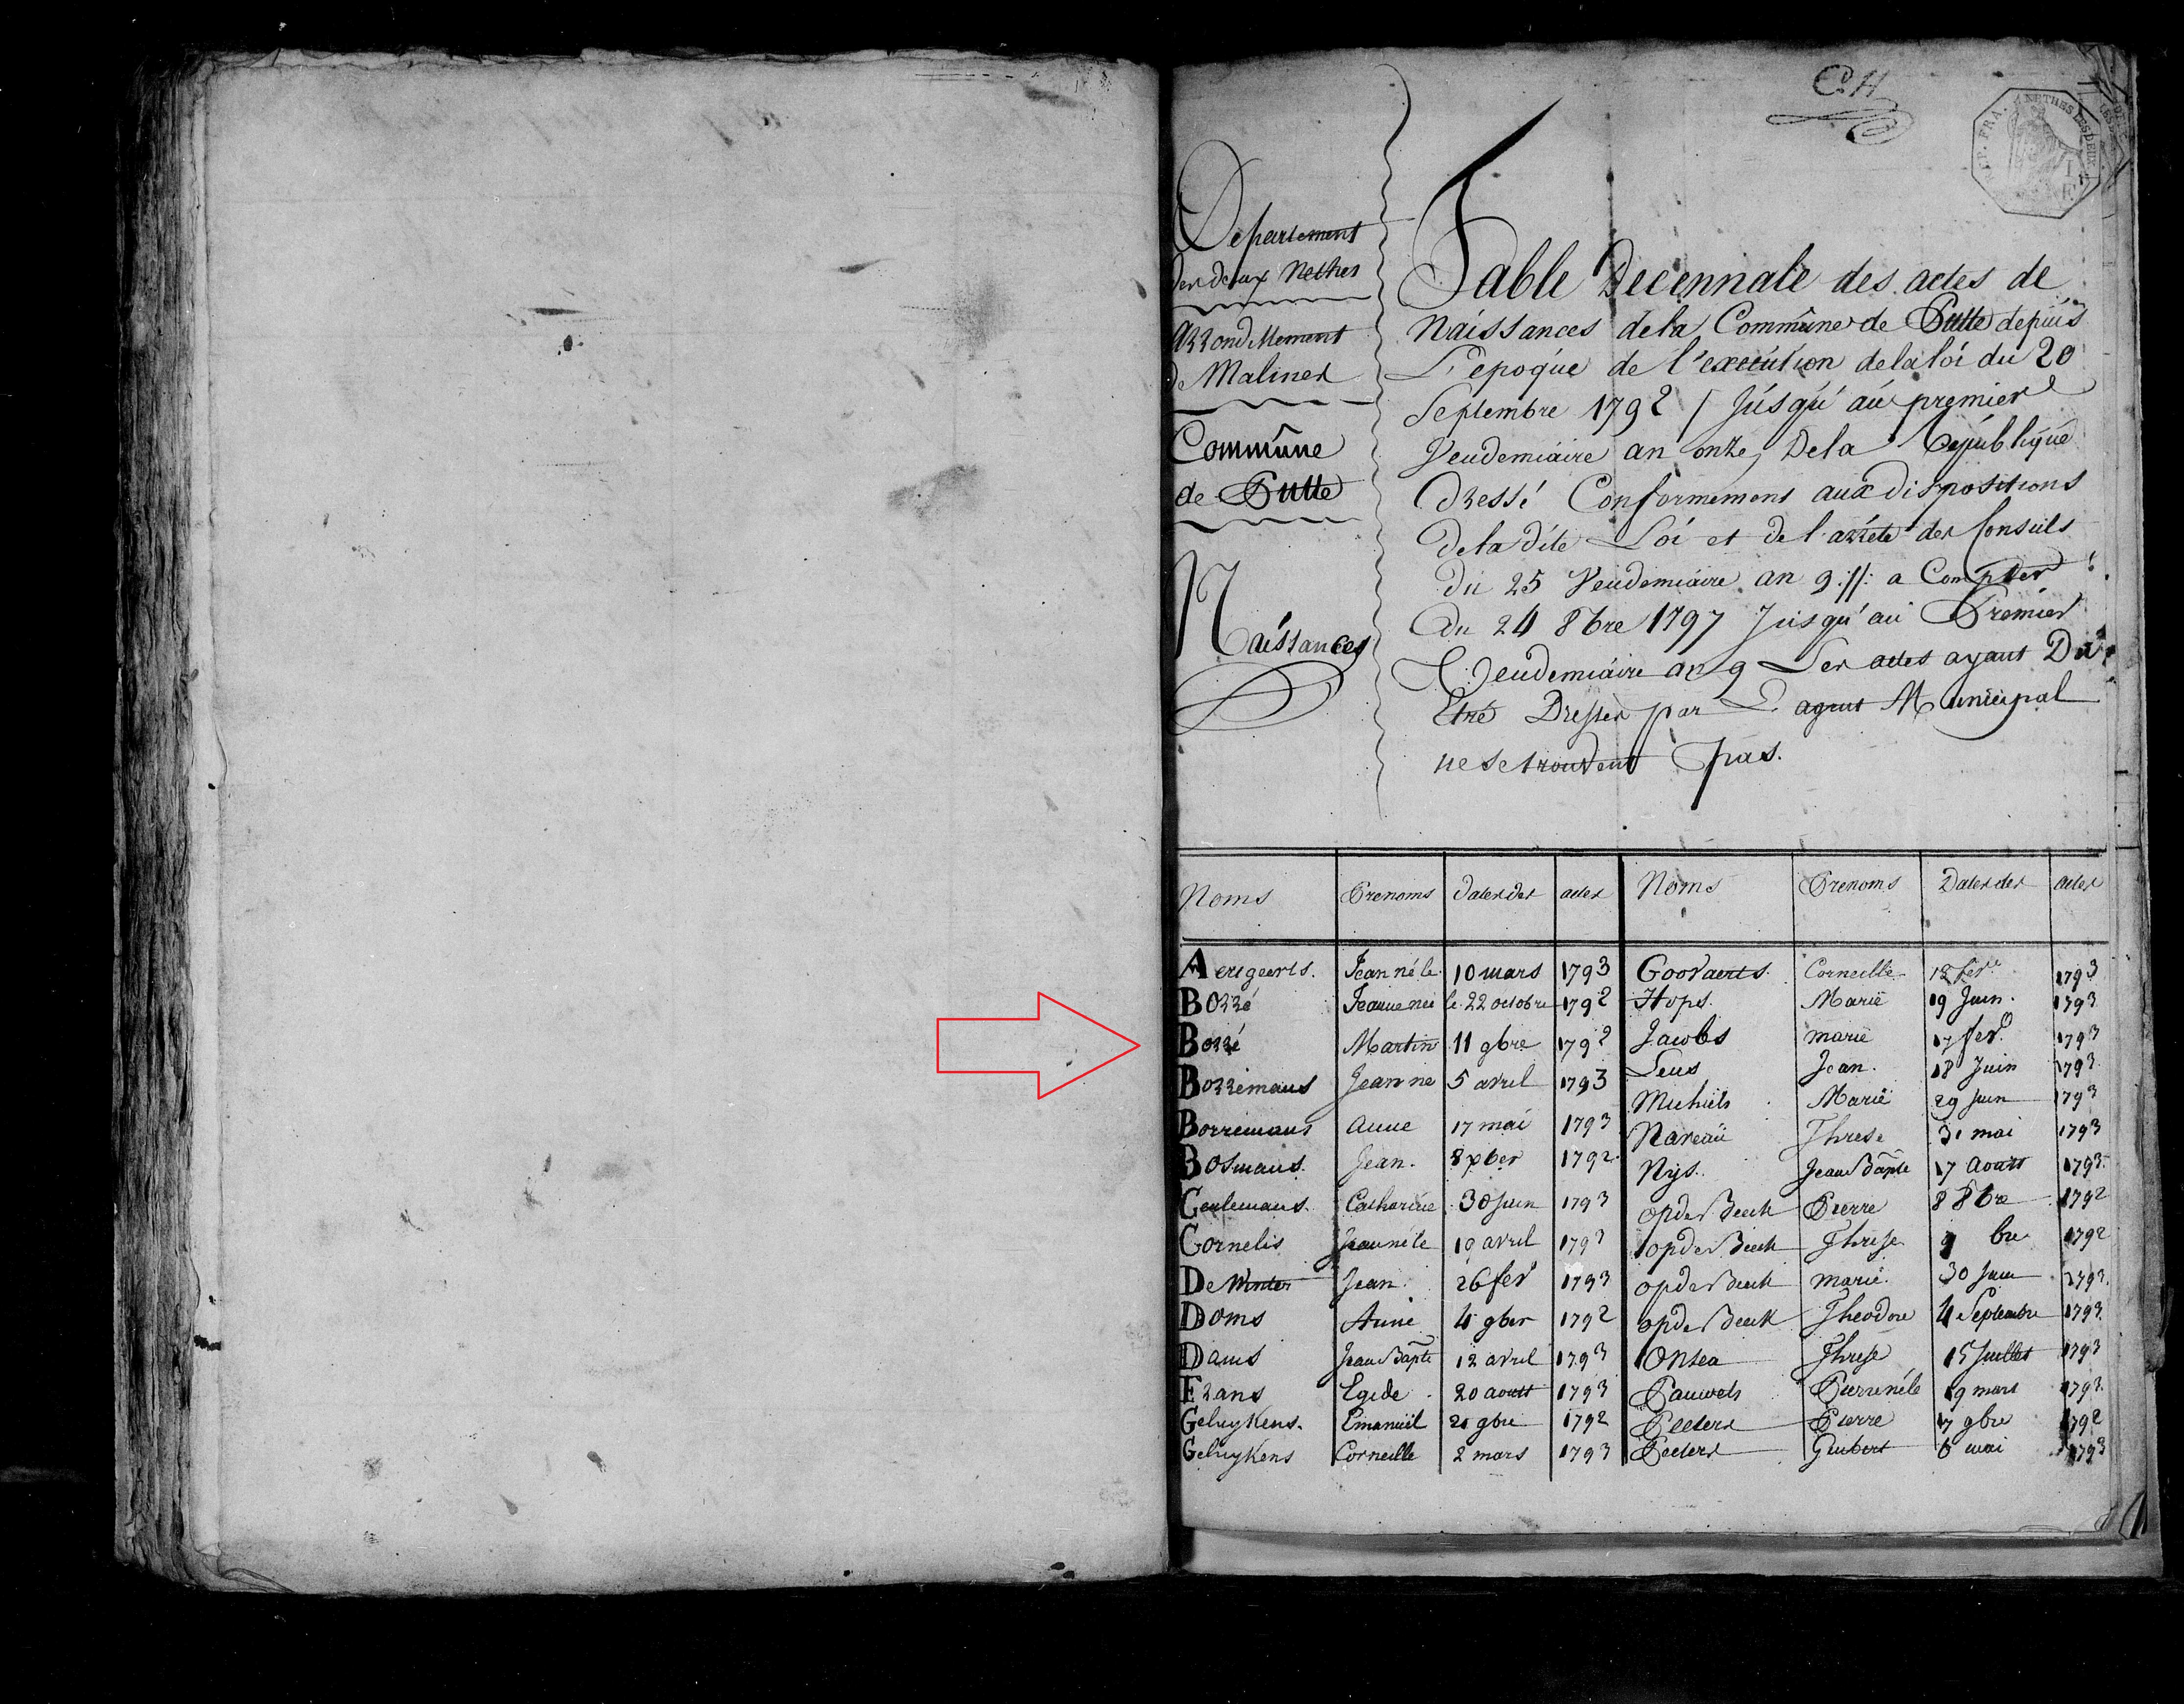 C. H
REP. FRA. NETHES LES DEUX
Departement
des deux Nethes
Arrondissement
de Malines
Commûne
de Putte
Naissances
Table Decennale des actes de
Naissances dela Commûne de Putte depuis
L'epoque de l'execution dela loi du 20
Septembre 1792 / Jusqu'au premier
Vendemiaire an onze, Dela Republique
Dressé Conformement aux dispositions
dela dite Loi et de l'arrété des Consuls
du 25 Vendemiaire an 9 :/: a Compter
du 24 8bre 1797 Jusqu'au Premier
Vendemiaire an 9 Les actes ayant Du
Etré Dresses par L'agent Municipal
ne se trouvent pas.
Noms Prenoms Dates des actes Noms Prenoms Dates des actes
Aertgeerts. Jean né le 10 mars 1793 Goovaerts. Corneille 12 fer 1793
Borré Jeanne née le 22 octobre 1792 Hops. Marie 19 Juin. 1793
Borré Martin 11 9bre 1792 Jacobs marie 17 fer 1793
Borremans Jeanne 5 avril 1793 Leus Jean. 18 Juin 1793
Borremans Anne 17 mai 1793 Michiels Marie 29 juin 1793
Bosmans. Jean. 8 xber 1792 Naveau Threse 31 mai 1793
Ceulemans. Catharine 30 Juin 1793 Nys. Jean Bapte 17 Aoust 1793
Cornelis Jean né le 19 avril 1793 op de Beeck Pierre 8 8bre 1792
De Winter Jean. 26 fer 1793 op de Beeck Threse 9 bre 1792
Doms Anne 4 9ber 1792 op de Beeck marie. 30 Juin 1793
Dams Jean Bapte 12 avril 1793 op de Beeck Theodore 4 Septembre 1793
Frans Egide 20 aoust 1793 Onsea Threse 15 Juillet 1793
Geluykens. Emanuel 21 9bre 1792 Pauwels Pierre né le 19 mars 1793
Geluykens Corneille 2 mars 1793 Peeters Pierre 17 9bre 1792
Peeters 6 mai 1793